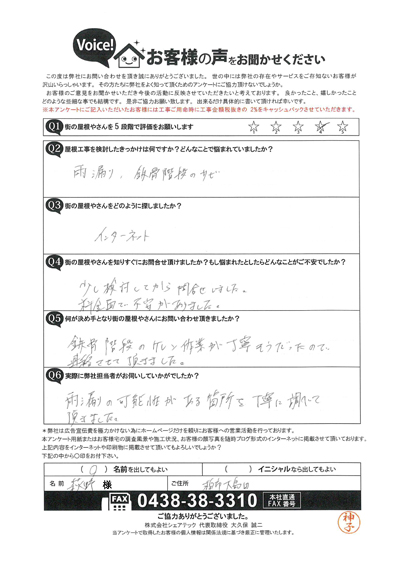 Voice! お客様の声をお聞かせください
この度は弊社にお問い合わせを頂き誠にありがとうございました。世の中には弊社の存在やサービスをご存知ないお客様が
沢山いらっしゃいます。その方たちに弊社をよく知って頂くためのアンケートにご協力頂けないでしょうか。
お客様のご意見をお聞かせいただき今後の活動に反映させていただきたいと考えております。良かったこと、嬉しかったこと
どのような些細な事でも結構です。是非ご協力お願い致します。出来るだけ具体的に書いて頂ければ幸いです。
※本アンケートにご記入いただいたお客様には工事ご用命時に工事金額税抜きの2%をキャッシュバックさせていただきます。
Q1 街の屋根やさんを5段階で評価をお願いします ☆ ☆ ☆ ☆ ☆
Q2 屋根工事を検討したきっかけは何ですか?どんなことで悩まれていましたか?
雨漏り、鉄骨階段のサビ
Q3 街の屋根やさんをどのように探しましたか?
インターネット
Q4 街の屋根やさんを知りすぐにお問合せ頂けましたか?もし悩まれたとしたらどんなことがご不安でしたか?
少し検討してから問合せしました。
料金面で不安がありました。
Q5 何が決め手となり街の屋根やさんにお問い合わせ頂きましたか?
鉄骨階段のケレン作業が丁寧そうだったので、
連絡させて頂きました。
Q6 実際に弊社担当者がお伺いしていかがでしたか?
雨漏りの可能性がある箇所を丁寧に調べて
頂きました。
*弊社は広告宣伝費を極力かけない為にホームページだけを頼りにお客様への営業活動を行っております。
本アンケート用紙またはお客様宅の調査風景や施工状況、お客様の顔写真を随時ブログ形式のインターネットに掲載させて頂いております。
上記内容をインターネットや印刷物に掲載させて頂いてもよろしいでしょうか?
下記の中から〇印をお付下さい。
( 〇 ) 名前を出してもよい ( ) イニシャルなら出してもよい
名前 様 ご住所
FAX 0438-38-3310 本社直通 FAX番号
ご協力ありがとうございました。
株式会社シェアテック 代表取締役 大久保 誠二
当アンケートで取得したお客様の個人情報は関係法規に基づき厳正に管理いたします。
神子